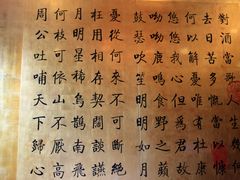 對酒當歌人生
去日苦多慨當以慷
何以解憂唯有杜康
悠悠我心但為君故
呦呦鹿鳴食野之苹
鼓瑟吹笙明明如月
憂從何來不可斷絕
枉用相存契闊談讌
月明星稀烏鵲南飛
何枝可依山不厭高
周公吐哺天下歸心